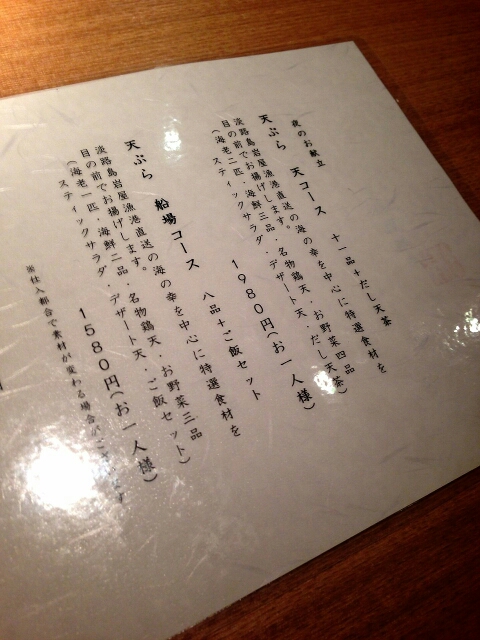 夜のお献立
天ぷら 天コース 十一品+だし天茶
淡路島岩屋漁港直送の海の幸を中心に特選食材を
目の前でお揚げします。
(海老二匹・海鮮三品・名物鶏天・お野菜四品
スティックサラダ・デザート天、おだし天茶)
1980円(お一人様)
天ぷら 船場コース 八品+ご飯セット
淡路島岩屋漁港直送の海の幸を中心に特選食材を
目の前でお揚げします。
(海老一匹・海鮮二品・名物鶏天・お野菜三品
スティックサラダ・デザート天・ご飯セット)
1580円(お一人様)
※仕入都合で素材が変わる場合がご